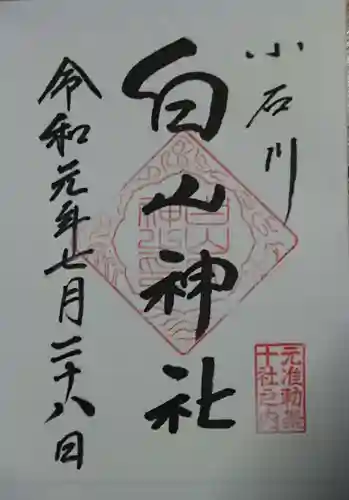 小石川
白山神社
令和元年七月二十八日
元准勅祭
十社之内